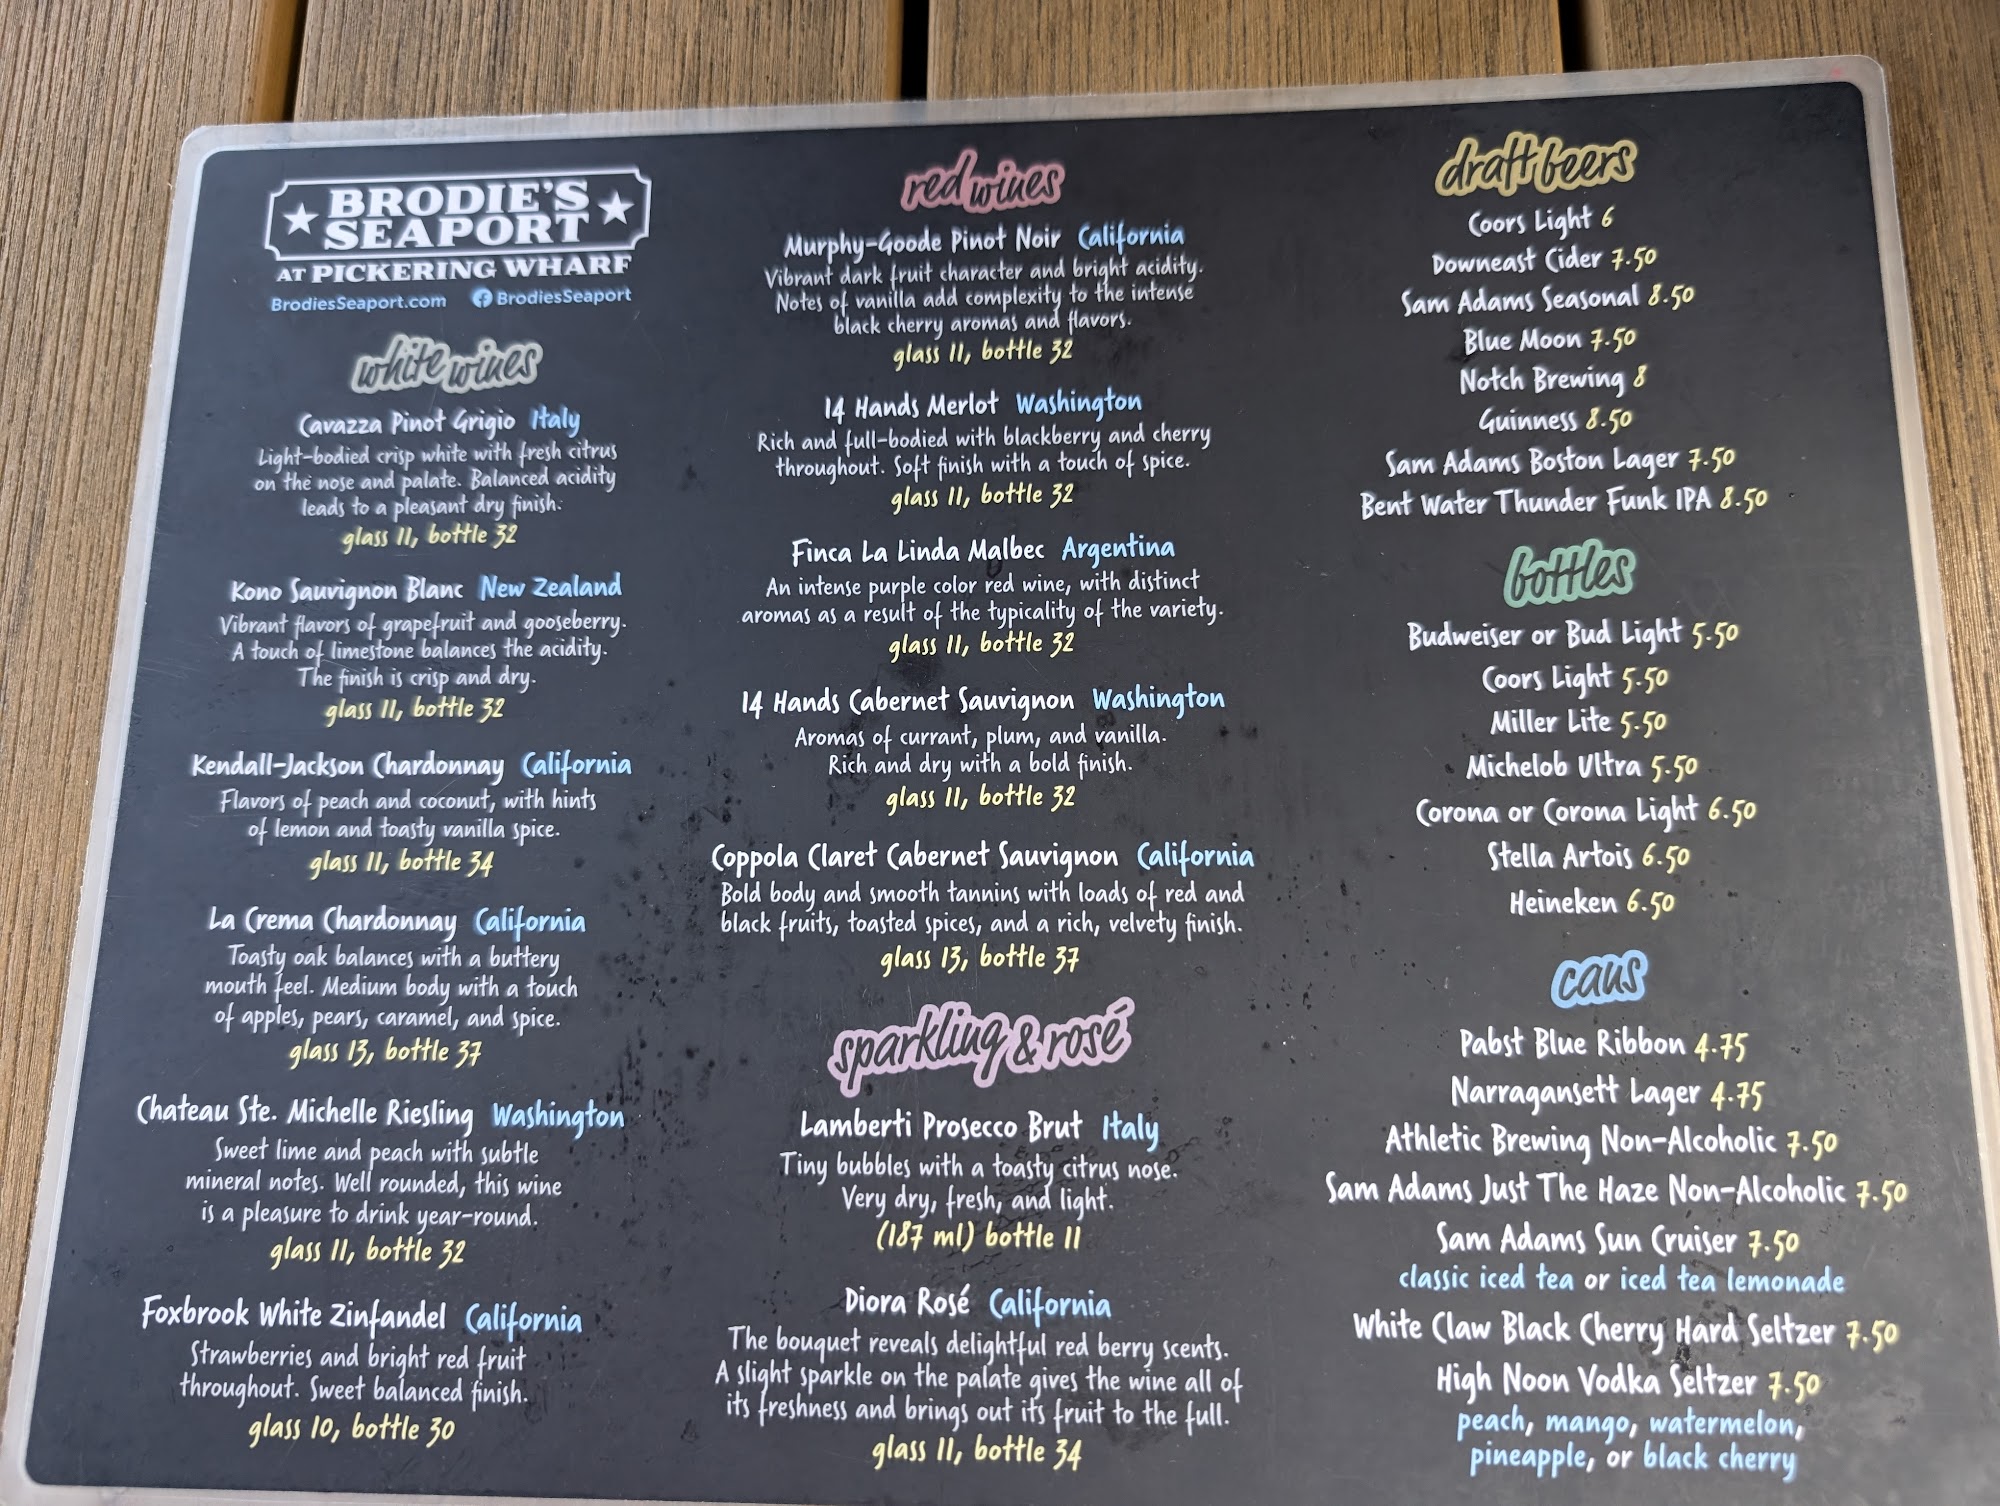 BRODIE'S
SEAPORT
AT PICKERING WHARF
BrodiesSeaport.com BrodiesSeaport
white wines
Cavazza Pinot Grigio Italy
Light-bodied crisp white with fresh citrus
on the nose and palate. Balanced acidity
leads to a pleasant dry finish.
glass 11, bottle 32
Kono Sauvignon Blanc New Zealand
Vibrant flavors of grapefruit and gooseberry.
A touch of limestone balances the acidity.
The finish is crisp and dry.
glass 11, bottle 32
Kendall-Jackson Chardonnay California
Flavors of peach and coconut, with hints
of lemon and toasty vanilla spice.
glass 11, bottle 34
La Crema Chardonnay California
Toasty oak balances with a buttery
mouth feel. Medium body with a touch
of apples, pears, caramel, and spice.
glass 13, bottle 37
Chateau Ste. Michelle Riesling Washington
Sweet lime and peach with subtle
mineral notes. Well rounded, this wine
is a pleasure to drink year-round.
glass 11, bottle 32
Foxbrook White Zinfandel California
Strawberries and bright red fruit
throughout. Sweet balanced finish.
glass 10, bottle 30
red wines
Murphy-Goode Pinot Noir California
Vibrant dark fruit character and bright acidity.
Notes of vanilla add complexity to the intense
black cherry aromas and flavors.
glass 11, bottle 32
14 Hands Merlot Washington
Rich and full-bodied with blackberry and cherry
throughout. Soft finish with a touch of spice.
glass 11, bottle 32
Finca La Linda Malbec Argentina
An intense purple color red wine, with distinct
aromas as a result of the typicality of the variety.
glass 11, bottle 32
14 Hands Cabernet Sauvignon Washington
Aromas of currant, plum, and vanilla.
Rich and dry with a bold finish.
glass 11, bottle 32
Coppola Claret Cabernet Sauvignon California
Bold body and smooth tannins with loads of red and
black fruits, toasted spices, and a rich, velvety finish.
glass 13, bottle 37
sparkling & rosé
Lamberti Prosecco Brut Italy
Tiny bubbles with a toasty citrus nose.
Very dry, fresh, and light.
(187 ml) bottle 11
Diora Rosé California
The bouquet reveals delightful red berry scents.
A slight sparkle on the palate gives the wine all of
its freshness and brings out its fruit to the full.
glass 11, bottle 34
draft beers
Coors Light 6
Downeast Cider 7.50
Sam Adams Seasonal 8.50
Blue Moon 7.50
Notch Brewing 8
Guinness 8.50
Sam Adams Boston Lager 7.50
Bent Water Thunder Funk IPA 8.50
bottles
Budweiser or Bud Light 5.50
Coors Light 5.50
Miller Lite 5.50
Michelob Ultra 5.50
Corona or Corona Light 6.50
Stella Artois 6.50
Heineken 6.50
cans
Pabst Blue Ribbon 4.75
Narragansett Lager 4.75
Athletic Brewing Non-Alcoholic 7.50
Sam Adams Just The Haze Non-Alcoholic 7.50
Sam Adams Sun Cruiser 7.50
classic iced tea or iced tea lemonade
White Claw Black Cherry Hard Seltzer 7.50
High Noon Vodka Seltzer 7.50
peach, mango, watermelon,
pineapple, or black cherry